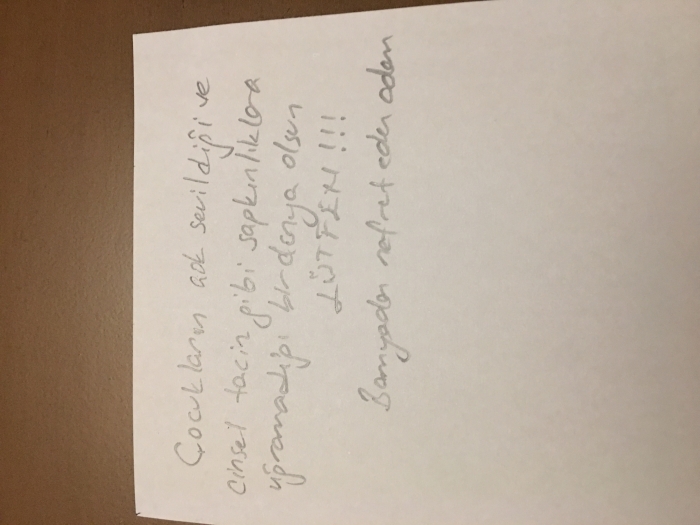 Çocukların çok sevildiği ve
cinsel taciz gibi sapkınlıklara
uğramadığı bir dünya olsun
LÜTFEN!!!
Bamyadan nefret eden adam